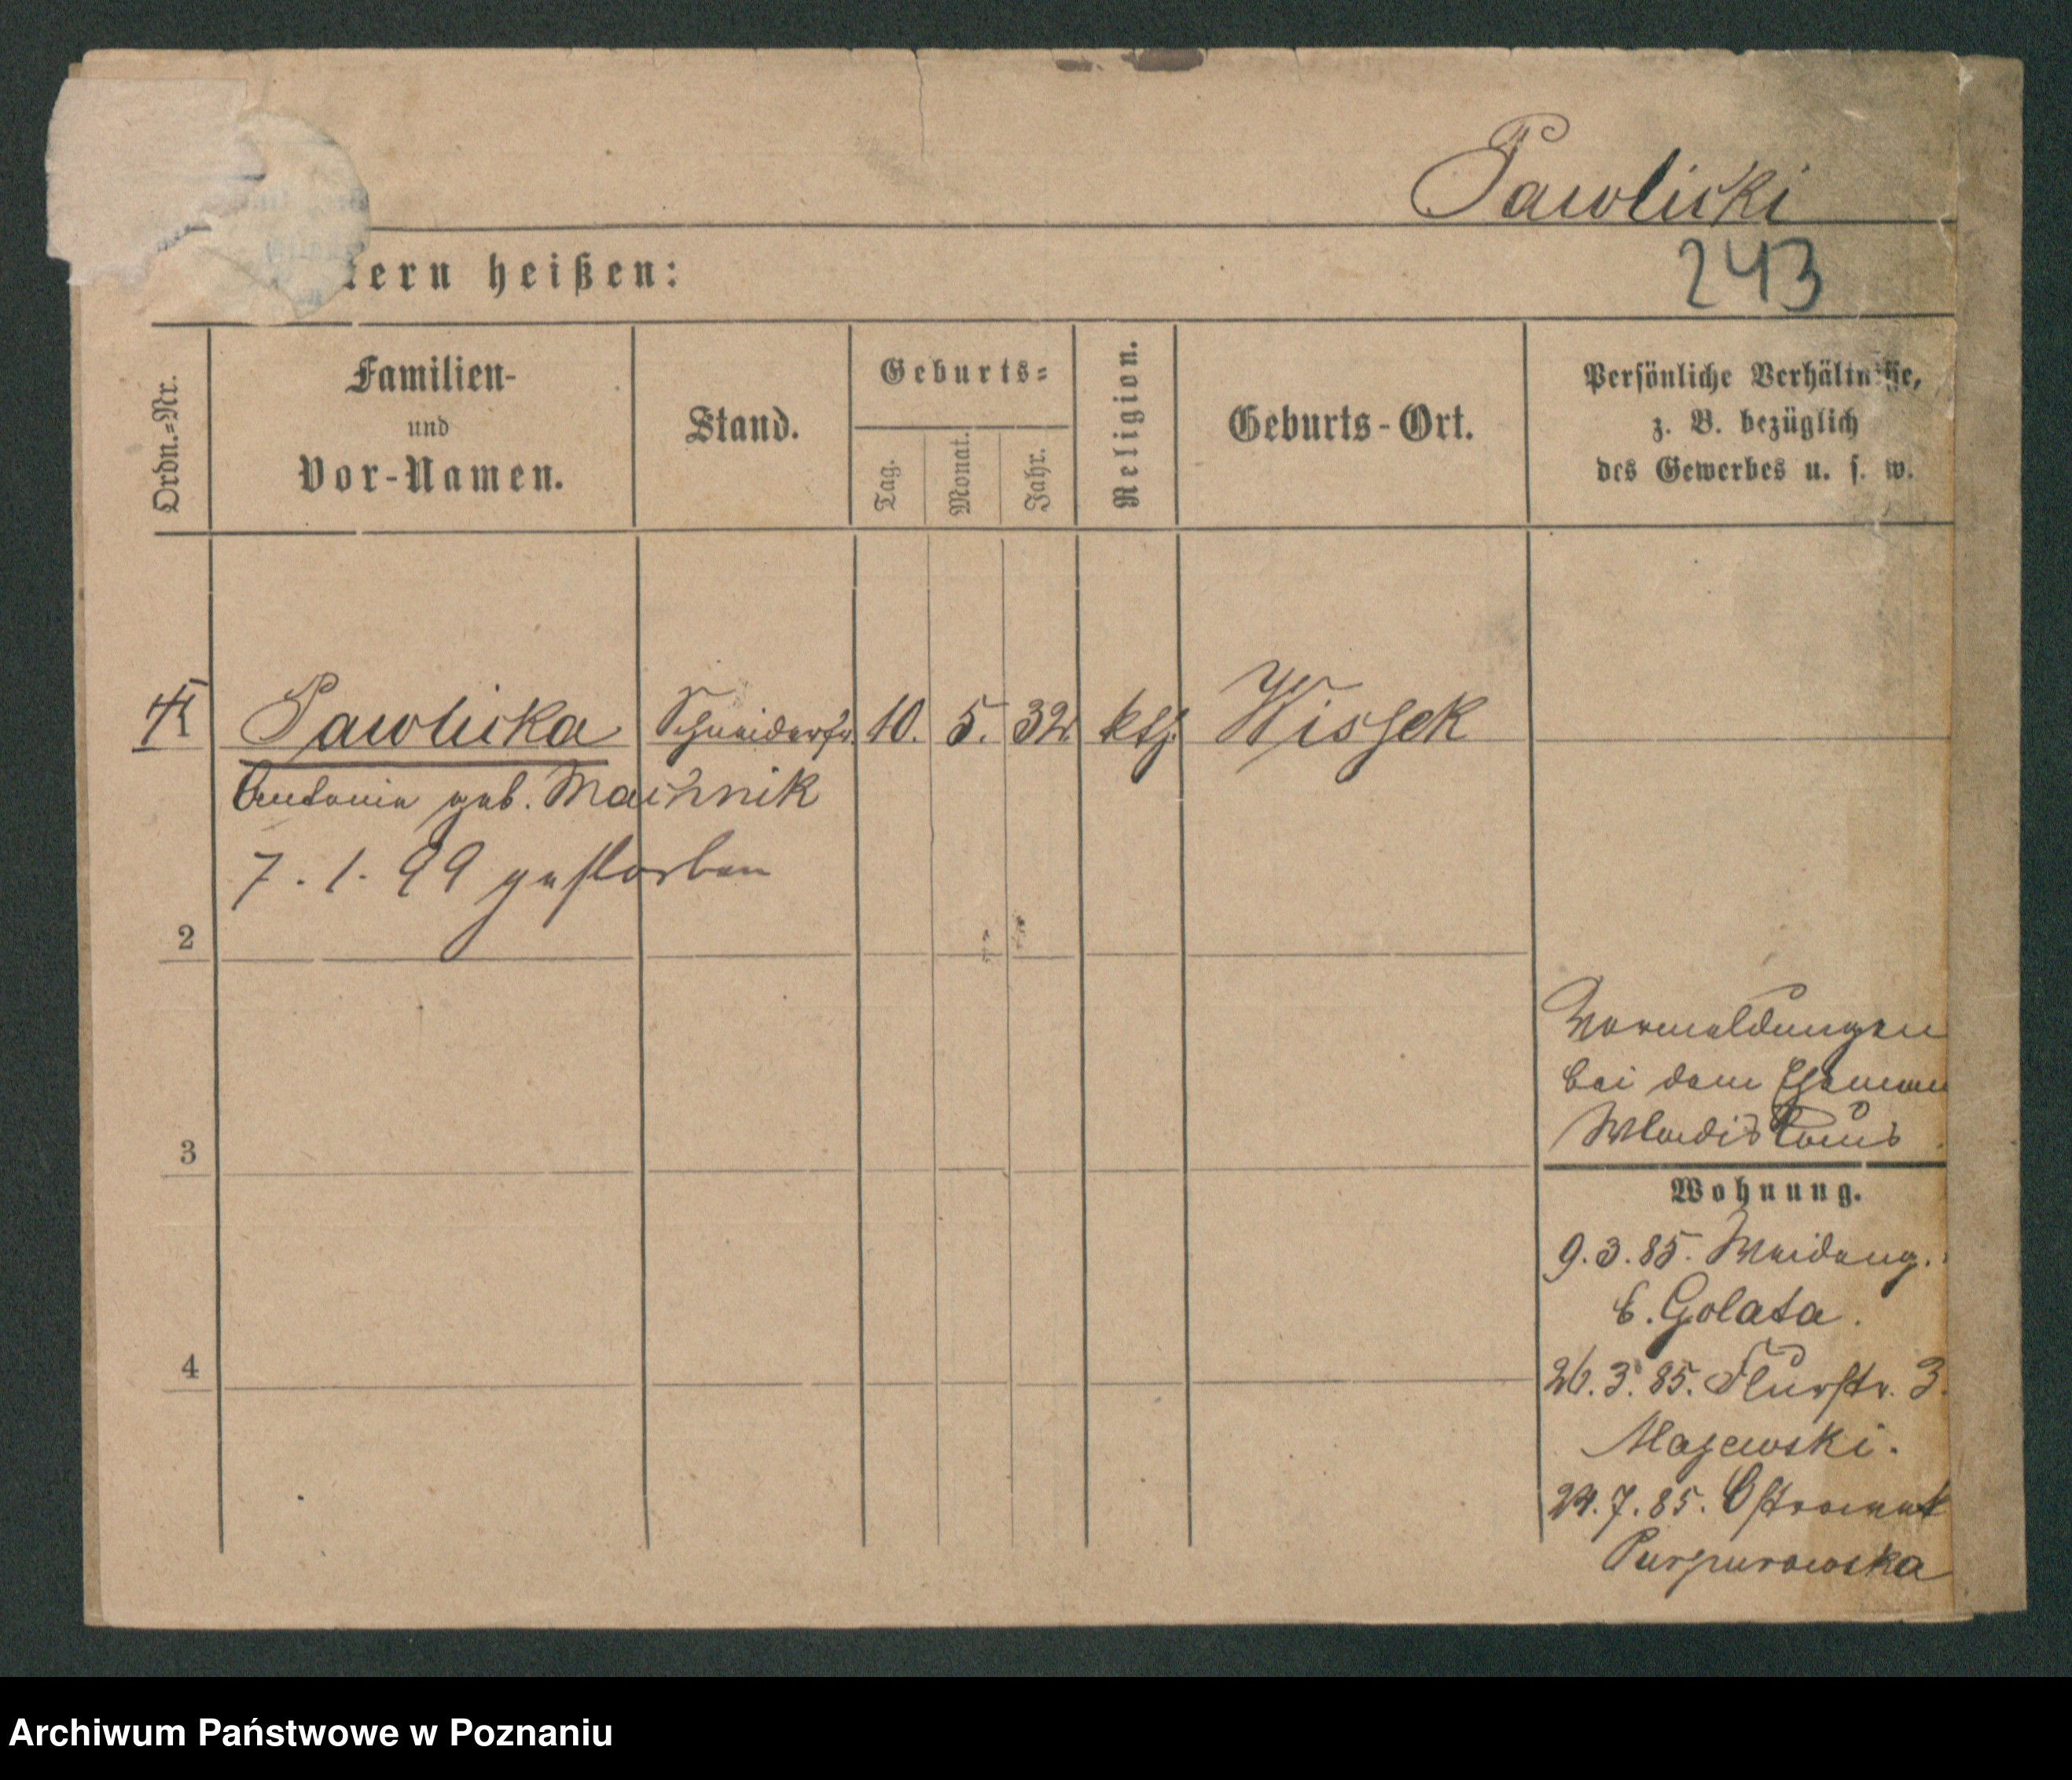 Pawlicki
243
tern heißen:
Ordn.=Nr.
Familien-
und
Vor-Namen.
Stand.
Geburts=
Tag.
Monat.
Jahr.
Religion.
Geburts-Ort.
Persönliche Verhältnisse,
z. B. bezüglich
des Gewerbes u. s. w.
Pawlicka Schneiderfr. 10. 5. 32. kth. Wissek
Antonie geb. Machnik
7. 1. 99 gestorben
2
Vormeldungen
bei dem Ehemann
Wladislaus
3
Wohnung.
9. 3. 85. Weideng.
b. Golata.
26. 3. 85. Flurstr. 3.
4
Majewski.
24. 7. 85. Ostrowek
Purpurowska
Archiwum Państwowe w Poznaniu